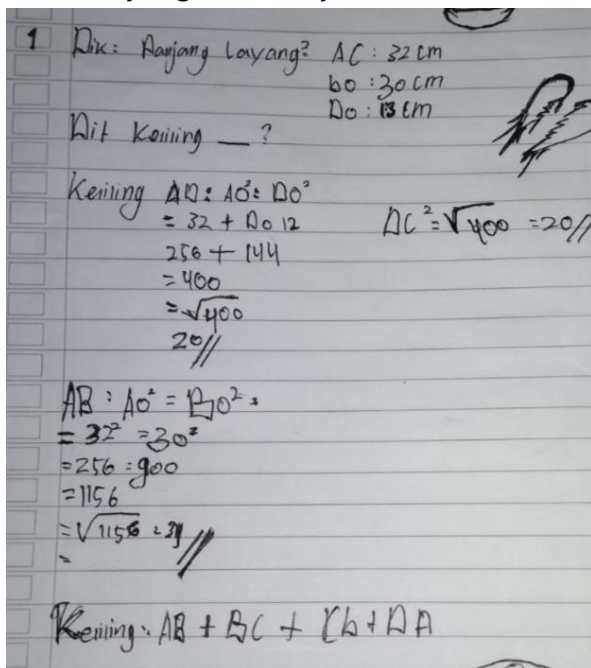 1 Dik: Panjang Layang² AC : 32 cm
bo : 30 cm
Do : 13 cm
Dit Keliling _ ?
Keliling AD : AO² : DO²
= 32 + Do 12
256 + 144
= 400
= √400
20//
DC² = √400 = 20//
AB : AO² = BO² :
= 32² = 30²
= 256 : 900
= 1156
= √1156 = 34//
=
Keliling : AB + BC + Cb + DA